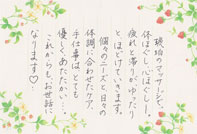 琥珀のマッサージで、
体ほぐし、心ほぐし…。
疲れと滞りがゆったり
とほどけていきます。
個々のニーズと日々の
体調に合わせたケア。
手仕事は とても
優しくあたたかい…。
これからも、お世話に
なります♡‥